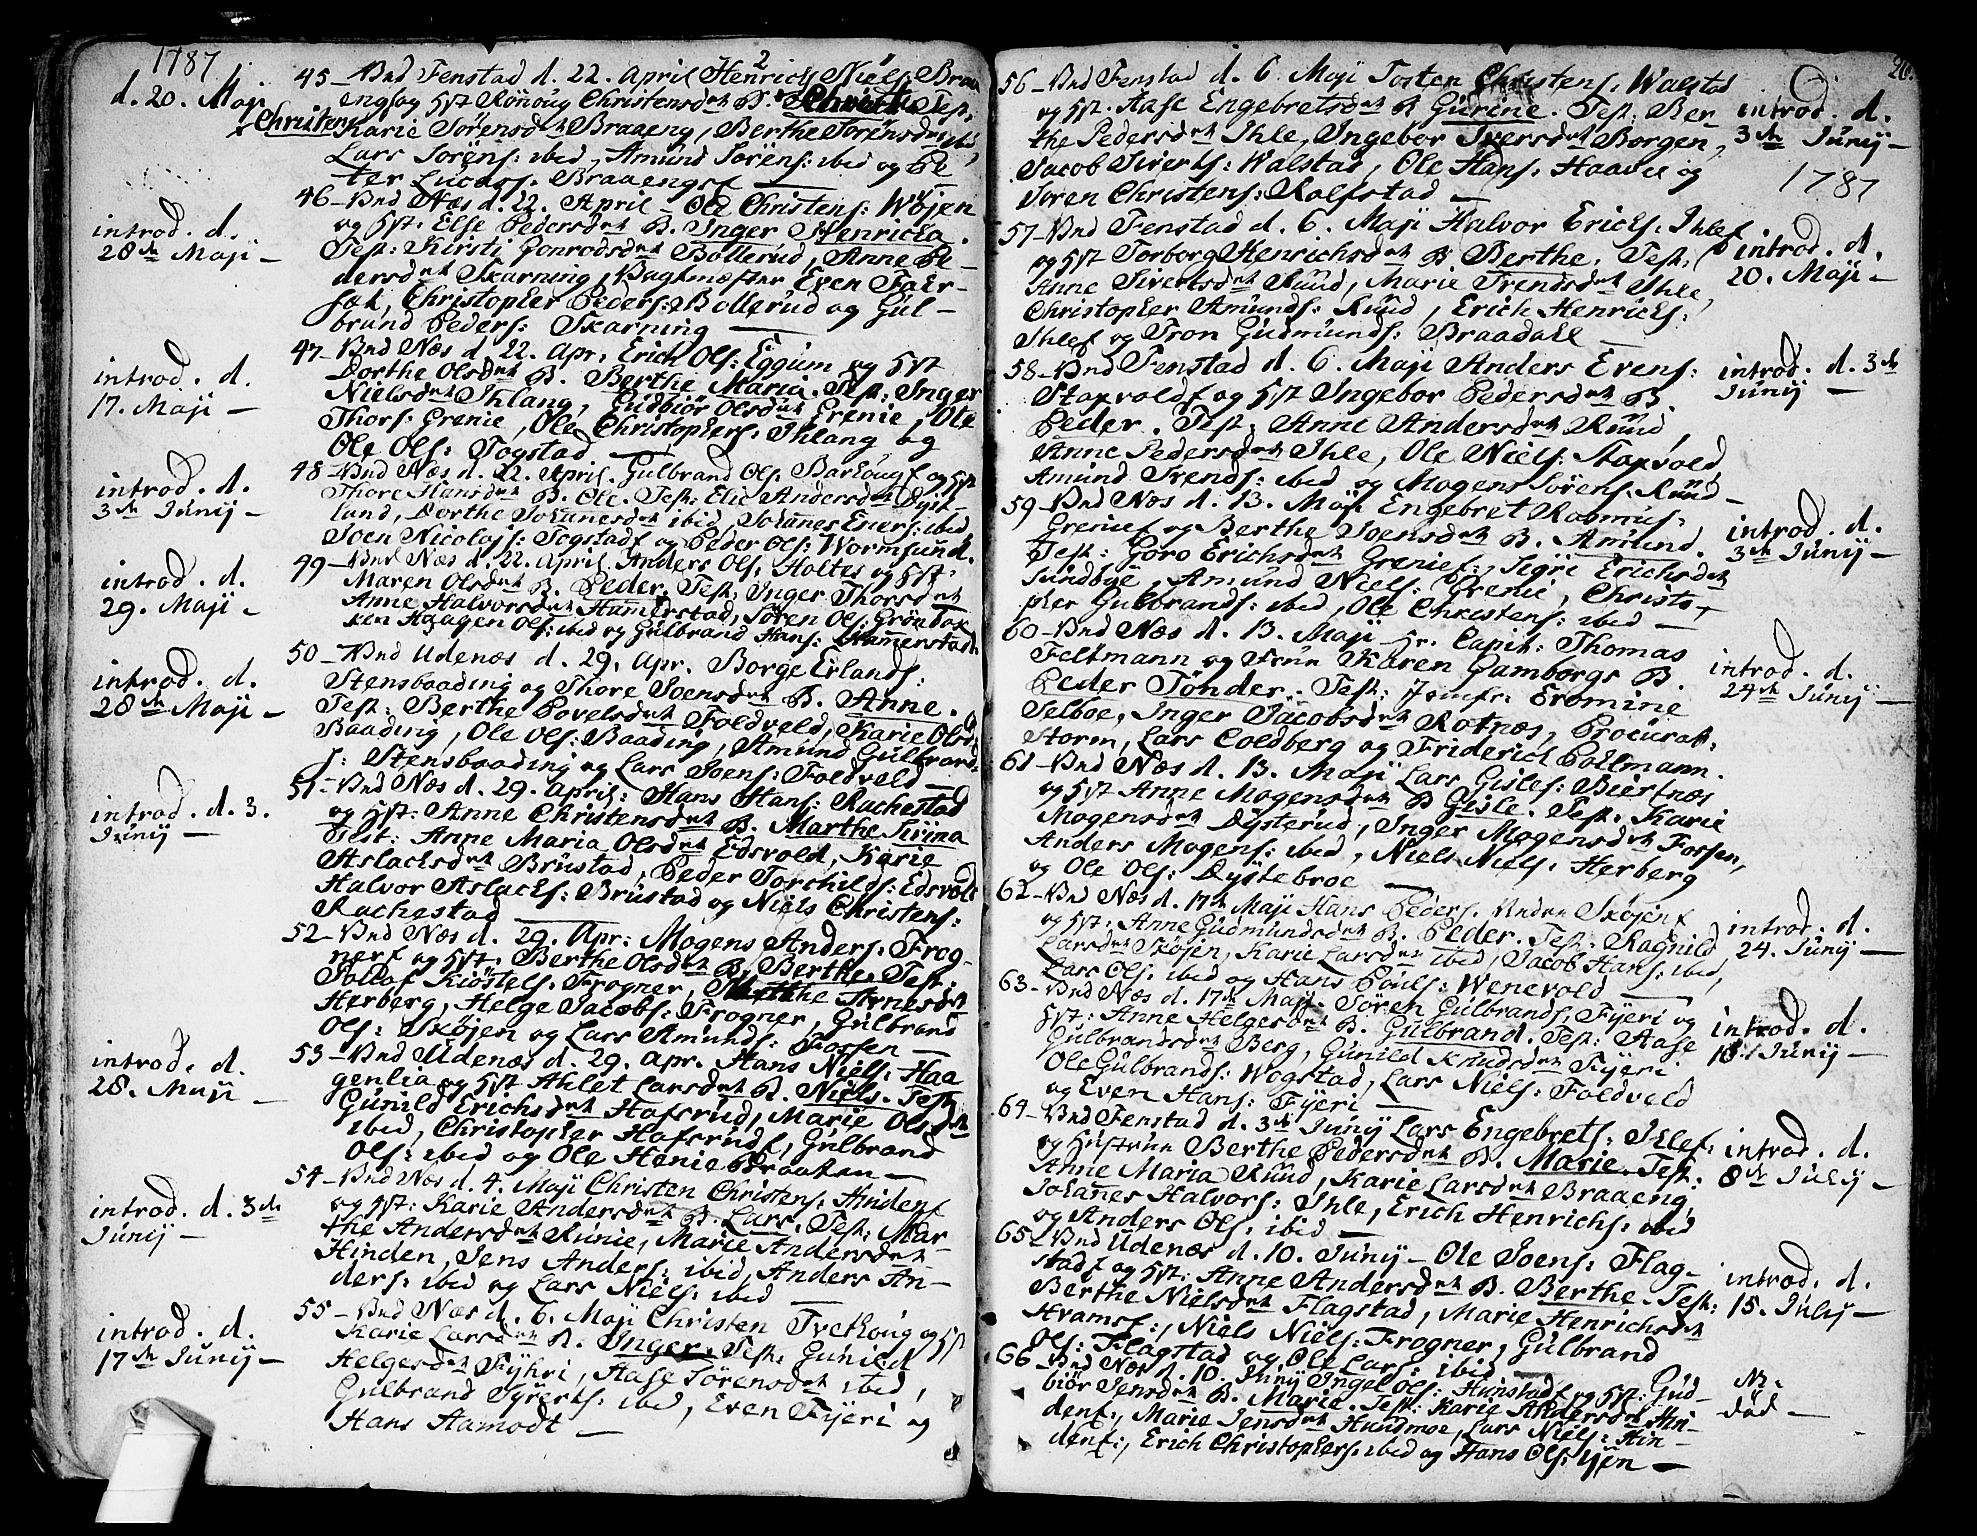 1787
d. 20. Maji
x Christens
45 — Vnd Fenstad d. 22. April Henrich Niels: Braa
engs og Hst Rönoug Christensdatr B. Test:
Karie Sörensdatr Braaeng, Berthe Sörensdatr ibid,
Lars Sörens: ibid, Amund Sörens: ibid og Pe
ter Lucass: Braaengs —
introd. d.
28de Maji —
46 — Vnd Næs d. 22. April — Ole Christens: Wöjen
og Hst: Else Pedersdatr B. Inger Henricka.
Test: Kirsti Gonrodsdatr Böllerud, Anne Pe-
dersdatr Skarning, Vagtmæster Even
Christopher Peders: Bollerud og Gul-
brand Peders: Skarning —
introd. d.
17. Maji —
47 — Vnd Næs d. 22. Apr: Erich Ols: Eggum og Hst
Dorthe Olsdatr B. Berthe Maria. Test: Inger
Nielsdatr Ihlang, Gudbiör Olsdatr Grenie, Ole
Thors: Grenie, Ole Christophers: Ihlang og
Ole Ols: Togstad —
introd. d.
3de Junij —
48 — Vnd Næs d. 22. April. Gulbrand Ols: og Hst
Thore Hansdatr B. Ole. Test: Elie Andersdatr Dyst-
land, Dorthe Johanesdatr ibid, Johanes Evers: ibid
Joen Nicolajs: Togstad og Peder Ols: Wormsund.
introd. d.
29. Maji —
49 — Vnd Næs d. 22. April. Anders Ols: Holtes og Hst:
Maren Olsdatr B. Peder. Test: Inger Thorsdatr
Anne Halvorsdatr Hamerstad, Sören Ols: Grönbak
ken Haagen Ols: ibid og Gulbrand Hans: Hamerstad.
introd. d.
28de Maji —
50 — Vnd Udenæs d. 29. Apr. Borge Erlands:
Stensbaading og Thore Joensdatr B. Anne.
Test: Berthe Povelsdatr Foldveld, Karie Olsdr
Baading, Ole Ols: Baading, Amund Gulbrand
s: Stensbaading og Lars Joens: Foldveld —
introd. d. 3.
Junij —
51 — Vnd Næs d. 29. April: Hans Hans: Rachestad
og Hst: Anne Christensdatr B. Marthe Sirina
Test: Anne Maria Olsdatr Edsvold, Karie
Aslachsdatr Brustad, Peder Torchilds: Edsvold
Halvor Aslachs: Brustad og Niels Christens:
Rachestad —
52 — Vnd Næs d. 29. Apr: Mogens Anders: Frog-
ners og Hst: Berthe Olsdatr B. Berthe. Test:
Tollof Kiöstels: Frogner, Marthe Arnesdatr
Herberg, Helge Jacobs: Frogner, Gulbrand
Ols: Skojen og Lars Amunds: Fossen —
introd. d.
28. Maji —
53 — Vnd Udenæs d. 29. Apr. Hans Niels: Haa
genlia og Hst Ahlet Larsdatr B. Niels. Test:
Gunild Erichsdatr Hafsrud, Marie Olsdatr
ibid, Christopher Hafsruds, Gulbrand
Ols: ibid og Ole Henie Braaten —
introd. d. 3de
Junij —
54 — Vnd Næs d. 4. Maji Christen Christens: Hindens
og Hst: Karie Andersdatr B. Lars. Test: Mar-
the Andersdatr Runie, Marie Andersdatr
Hinden, Jens Anders: ibid, Anders An-
ders: ibid og Lars Niels: ibid
introd. d.
17de Junij —
55 — Vnd Næs d. 6. Maji Christen Tvethoug og Hst
Karie Larsdatr B. Inger. Test: Gunild
Helgesdatr Fyhri, Aase Sörensdatr ibid,
Gulbrand Syverts: ibid, Even Fyeri og
Hans Aamodt —
26.
56 — Vnd Fenstad d. 6. Maji Tosten Christens: Walstad
og Hst: Aase Engebretsdatr B Gurine. Test: Ber
the Pedersdatr Ihle, Ingebor Iversdatr Borgen,
Jacob Siverts: Walstad, Ole Hans: Haavie og
Soren Christens: Rolfstad —
introd. d.
3de Junij —
1787
57 — Vnd Fenstad d. 6. Maji Halvor Erichs: Ihles
og Hst Torborg Henrichsdatr B Berthe. Test:
Anne Sivertsdatr Ruud, Marie Trendsdatr Ihle,
Christopher Amunds: Ruud, Erich Henrichs:
Ihles og Tron Gudmunds: Braadall —
introd. d.
20. Maji —
58 — Vnd Fenstad d. 6. Maji Anders Evens:
Stoxvolds og Hst Ingebor Pedersdatr B.
Peder. Test: Anne Andersdatr Ruud,
Anne Pedersdatr Ihle, Ole Niels: Stoxvold
Amund Trends: ibid og Mogens Sörens: Ruud —
introd. d. 3de
Junij —
59 — Vnd Næs d. 13. Maji Engebret Rasmus:
Grenies og Berthe Joensdatr B. Amund.
Test: Goro Erichsdatr Grenies:, Sigri Erichsdatr
Sundbye, Amund Niels: Grenie, Christo-
pher Gulbrands: ibid, Ole Christens: ibid —
introd. d.
3de Junij —
60 — Vnd Næs d. 13. Maji — Hr. Capit: Thomas
Feltmann og Frue Karen Gamborgs B.
Peder Tönder. Test: Jomfr: Eromine
Selboe, Inger Jacobsdatr Rotnæs, Procurat:
Storm, Lars Coldberg og Friderich Poltmann.
introd. d.
24de Junij —
61 — Vnd Næs d. 13. Maji Lars Gisles: Biertnæs
og Hst Anne Mogensdatr B Gisle. Test: Karie
Mogensdatr Dysterud, Inger Mogensdatr Fossen,
Anders Mogens: ibid, Niels Niels: Herberg
og Ole Ols: Dystebroe —
62 — Vnd Næs d. 17de Maji Hans Peders: Skojens
og Hst: Anne Gudmundsdatr B. Peder. Test: Ragnild
Larsdatr Skojen, Karie Larsdatr ibid, Jacob Hans: ibid,
Lars Ols: ibid og Hans Pouls: Wenevold —
introd. d.
24. Junij —
63 — Vnd Næs d. 17de Maji. Sören Gulbrands: Fyeri og
Hst: Anne Helgesdatr B. Gulbrand. Test: Aase
Gulbrandsdatr Berg, Gunild Knudsdatr Fyeri
Ole Gulbrands: Wogstad, Lars Niels: Foldveld
og Even Hans: Fyeri —
introd. d.
18. Junij —
64 — Vnd Fenstad d. 3de Junij Lars Engebrets: Ihles:
og Hustrue Berthe Pedersdatr B. Marie. Test:
Anne Maria Ruud, Karie Larsdatr Braaeng,
Johanes Halvors: Ihle, Erich Henrichs: ibid
og Anders Ols: ibid —
introd. d.
8de July —
65 — Vnd Udenæs d. 10. Junij — Ole Joens: Flag-
stad og Hst: Anne Andersdatr B. Berthe. Test:
Berthe Nielsdatr Flagstad, Marie Henrichsdatr
Hvams:, Niels Niels: Frogner, Gulbrand
Ols: Flagstad og Ole Lars: ibid —
introd. d.
15. July —
66 — Vnd Næs d. 10. Junij Ingel Ols: Hunstad og Hst: Gud
biör Jensdatr B. Marie. Test: Karie Andersdatr Hin
dens:, Marie Jensdatr Hundmoe, Lars Niels: Hin-
dens:, Erich Christophers: ibid og Hans Ols: Ijen —
död —